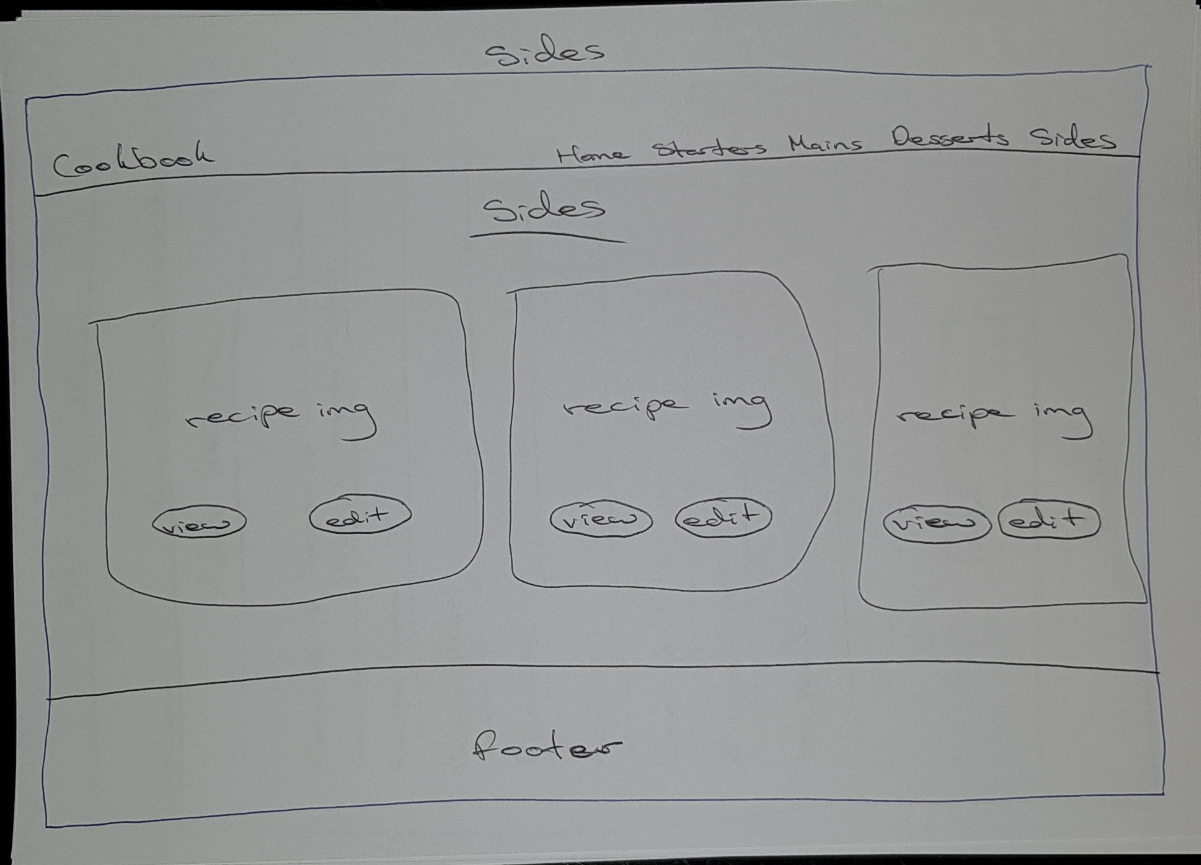 Sides
Cookbook Home Starters Mains Desserts Sides
Sides
recipe img recipe img recipe img
view edit view edit view edit
footer